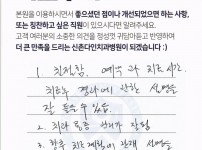 본원을 이용하시면서 좋으셨던 점이나 개선되었으면 하는 사항,
또는 칭찬하고 싶은 직원이 있으시다면 알려주세요.
고객 여러분의 소중한 의견을 정성껏 귀담아듣고 반영하여
더 큰 만족을 드리는 신촌다인치과병원이 되겠습니다 :)
1. 친절함. 예약 과 치료 시간.
치료후 결과에 관한 설명을
잘 들을수 있음.
2. 치과 통증
3. 향후 치료 계획이 관해 설명을